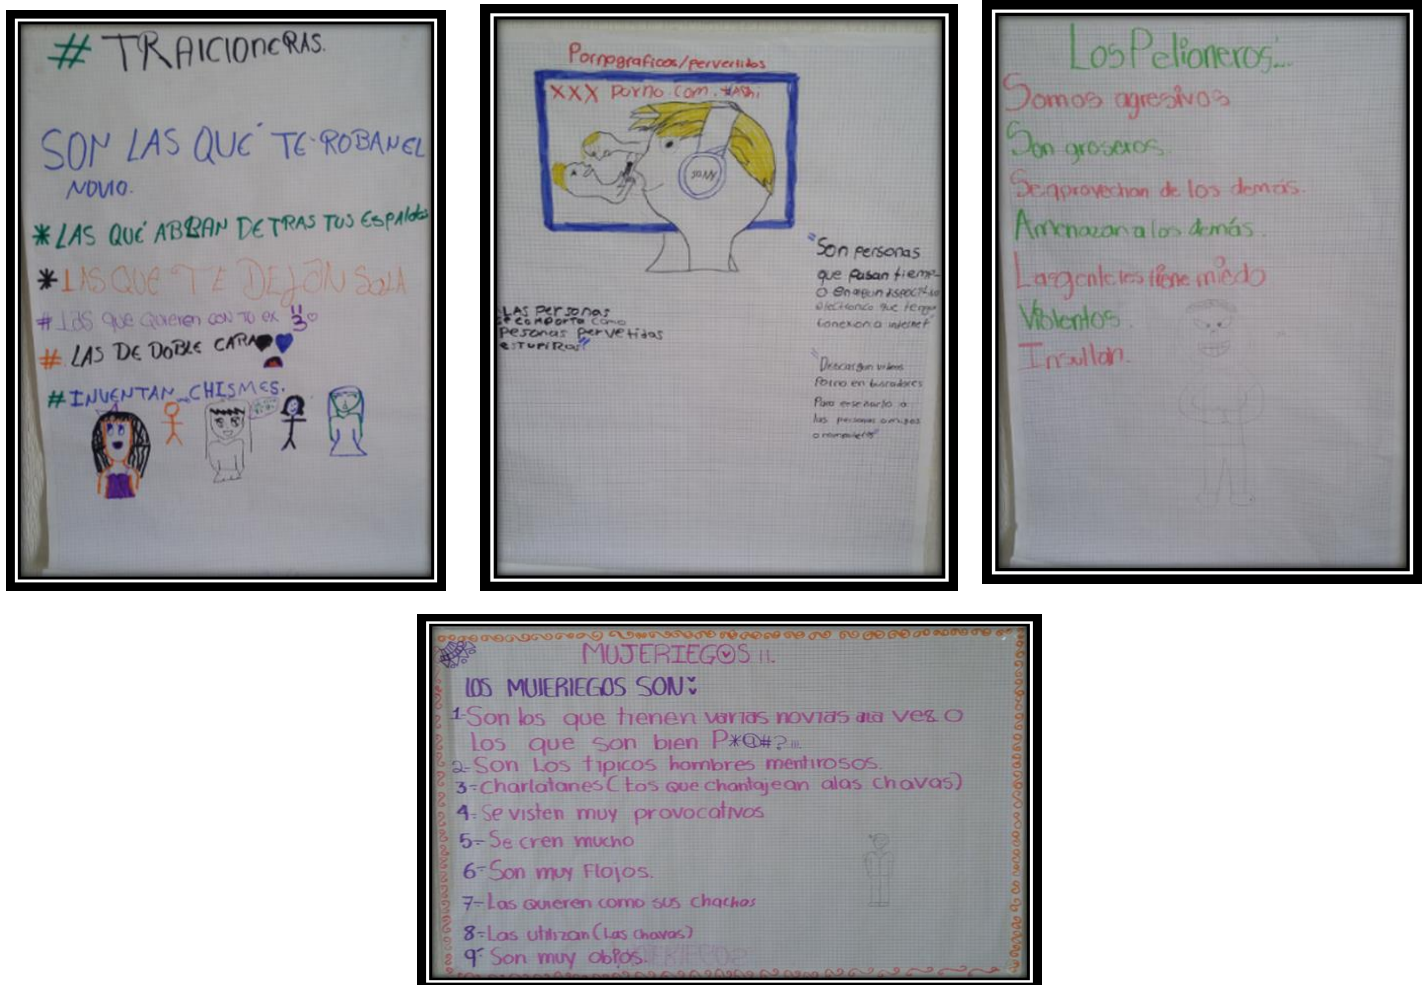 # TRAICIONERAS.
SON LAS QUÉ TE ROBAN EL
NOVIO.
* LAS QUÉ ABLAN DETRAS TUS ESPALDAS
* LAS QUE TE DEJAN SOLA
# LAS QUE QUIEREN CON TU EX
# LAS DE DOBLE CARA
# INVENTAN CHISMES.
Pornograficos/pervertidos
XXX Porno com.
SONY
"Son personas
que pasan tiemp-
o en algun
electronico que tenga
conexion a internet
LAS PERSONAS
se COMPORTA como
pesonas pervetidas
"Descargan videos
Porno en buscadores
Para enseñarlo a
las personas amigos
Los Pelioneros...
Somos agresivos
Son groseros.
Se aprovechan de los demás.
Amenazan a los demás.
Las gente les tiene miedo
Violentos.
Insultan.
MUJERIEGOS
LOS MUJERIEGOS SON:
1-Son los que tienen varias novias ala vez o
los que son bien P*@#?...
2-Son Los tipicos hombres mentirosos.
3-Charlatanes (Los que chantajean alas chavas)
4-Se visten muy provocativos
5-Se cren mucho
6-Son muy Flojos.
7-Las quieren como sus chachas
8-Las utilizan (Las chavas)
9-Son muy obios.